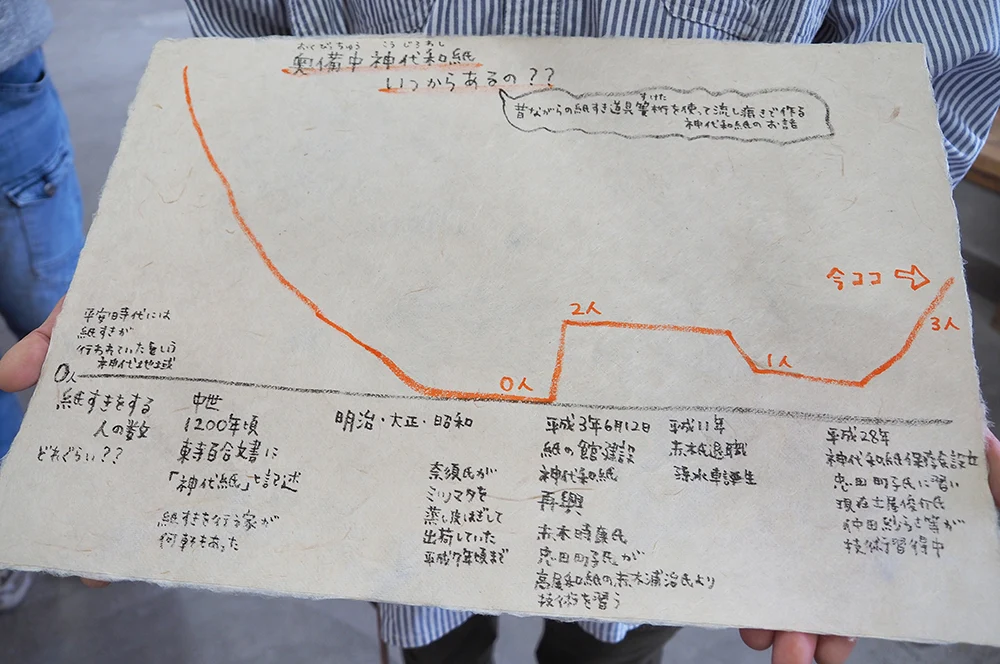 おくびっちゅう こうじろわし
奥備中神代和紙
いつからあるの??
すけた
昔ながらの紙すき道具簀桁を使って流し漉きで作る
神代和紙のお話
今ココ
2人
3人
1人
0人
平安時代には
紙すきが
行われていたという
神代地域
0人
紙すきをする
人の数
どれぐらい??
中世
1200年頃
東寺百合文書に
「神代紙」と記述
紙すきを行う家が
何軒もあった
明治・大正・昭和
奈須氏が
ミツマタを
蒸し皮はぎして
出荷していた
平成7年頃まで
平成3年6月12日
紙の館建設
神代和紙
再興
忠田町子氏が
高尾和紙の
より
技術を習う
平成11年
退職
誕生
平成28年
神代和紙保存会設立
忠田町子氏に習い
現在
仲田紗らさ等が
技術習得中